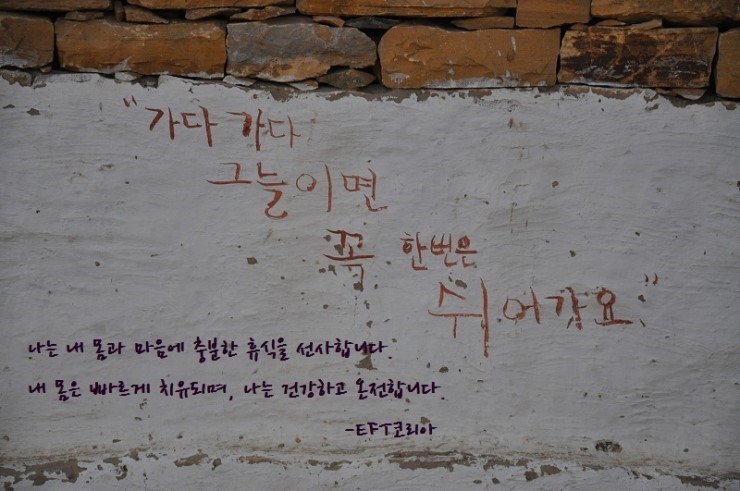 "가다 가다
그늘이면
꼭 한번은
쉬어가요."
나는 내 몸과 마음에 충분한 휴식을 선사합니다.
내 몸은 빠르게 치유되며, 나는 건강하고 온전합니다.
-EFT코리아